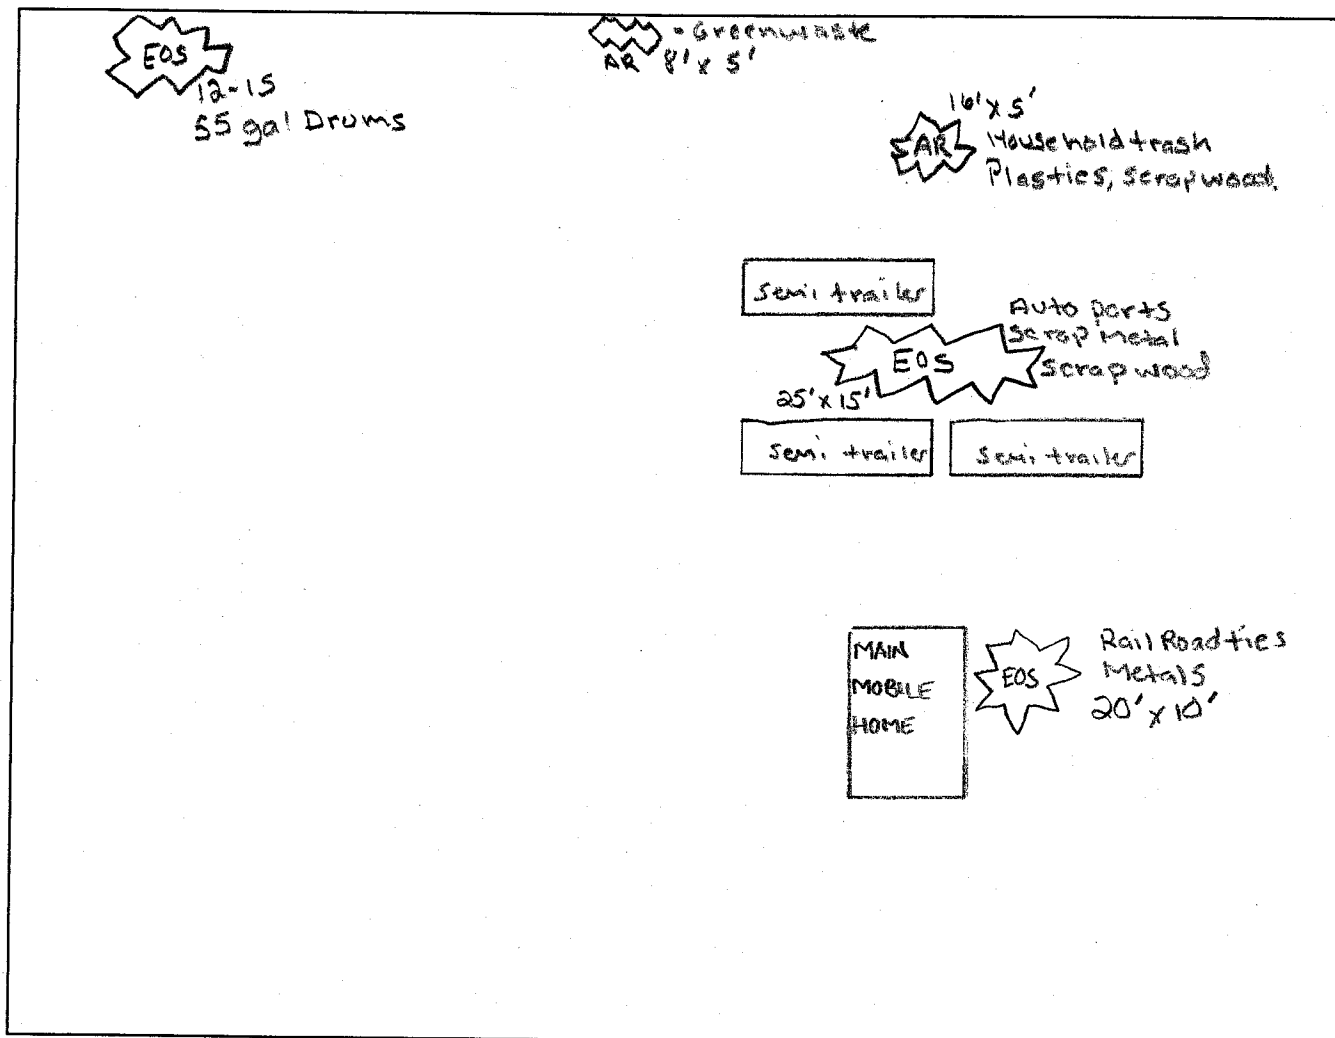 EOS
12-15
55 gal Drums
- Greenwaste
AR 8' x 5'
16' x 5'
AR
Household trash
Plastics, scrap wood.
Semi trailer
Auto parts
Scrap Metal
Scrap wood
EOS
25' x 15'
Semi trailer
Semi trailer
MAIN
MOBILE
HOME
EOS
Rail Road ties
Metals
20' x 10'